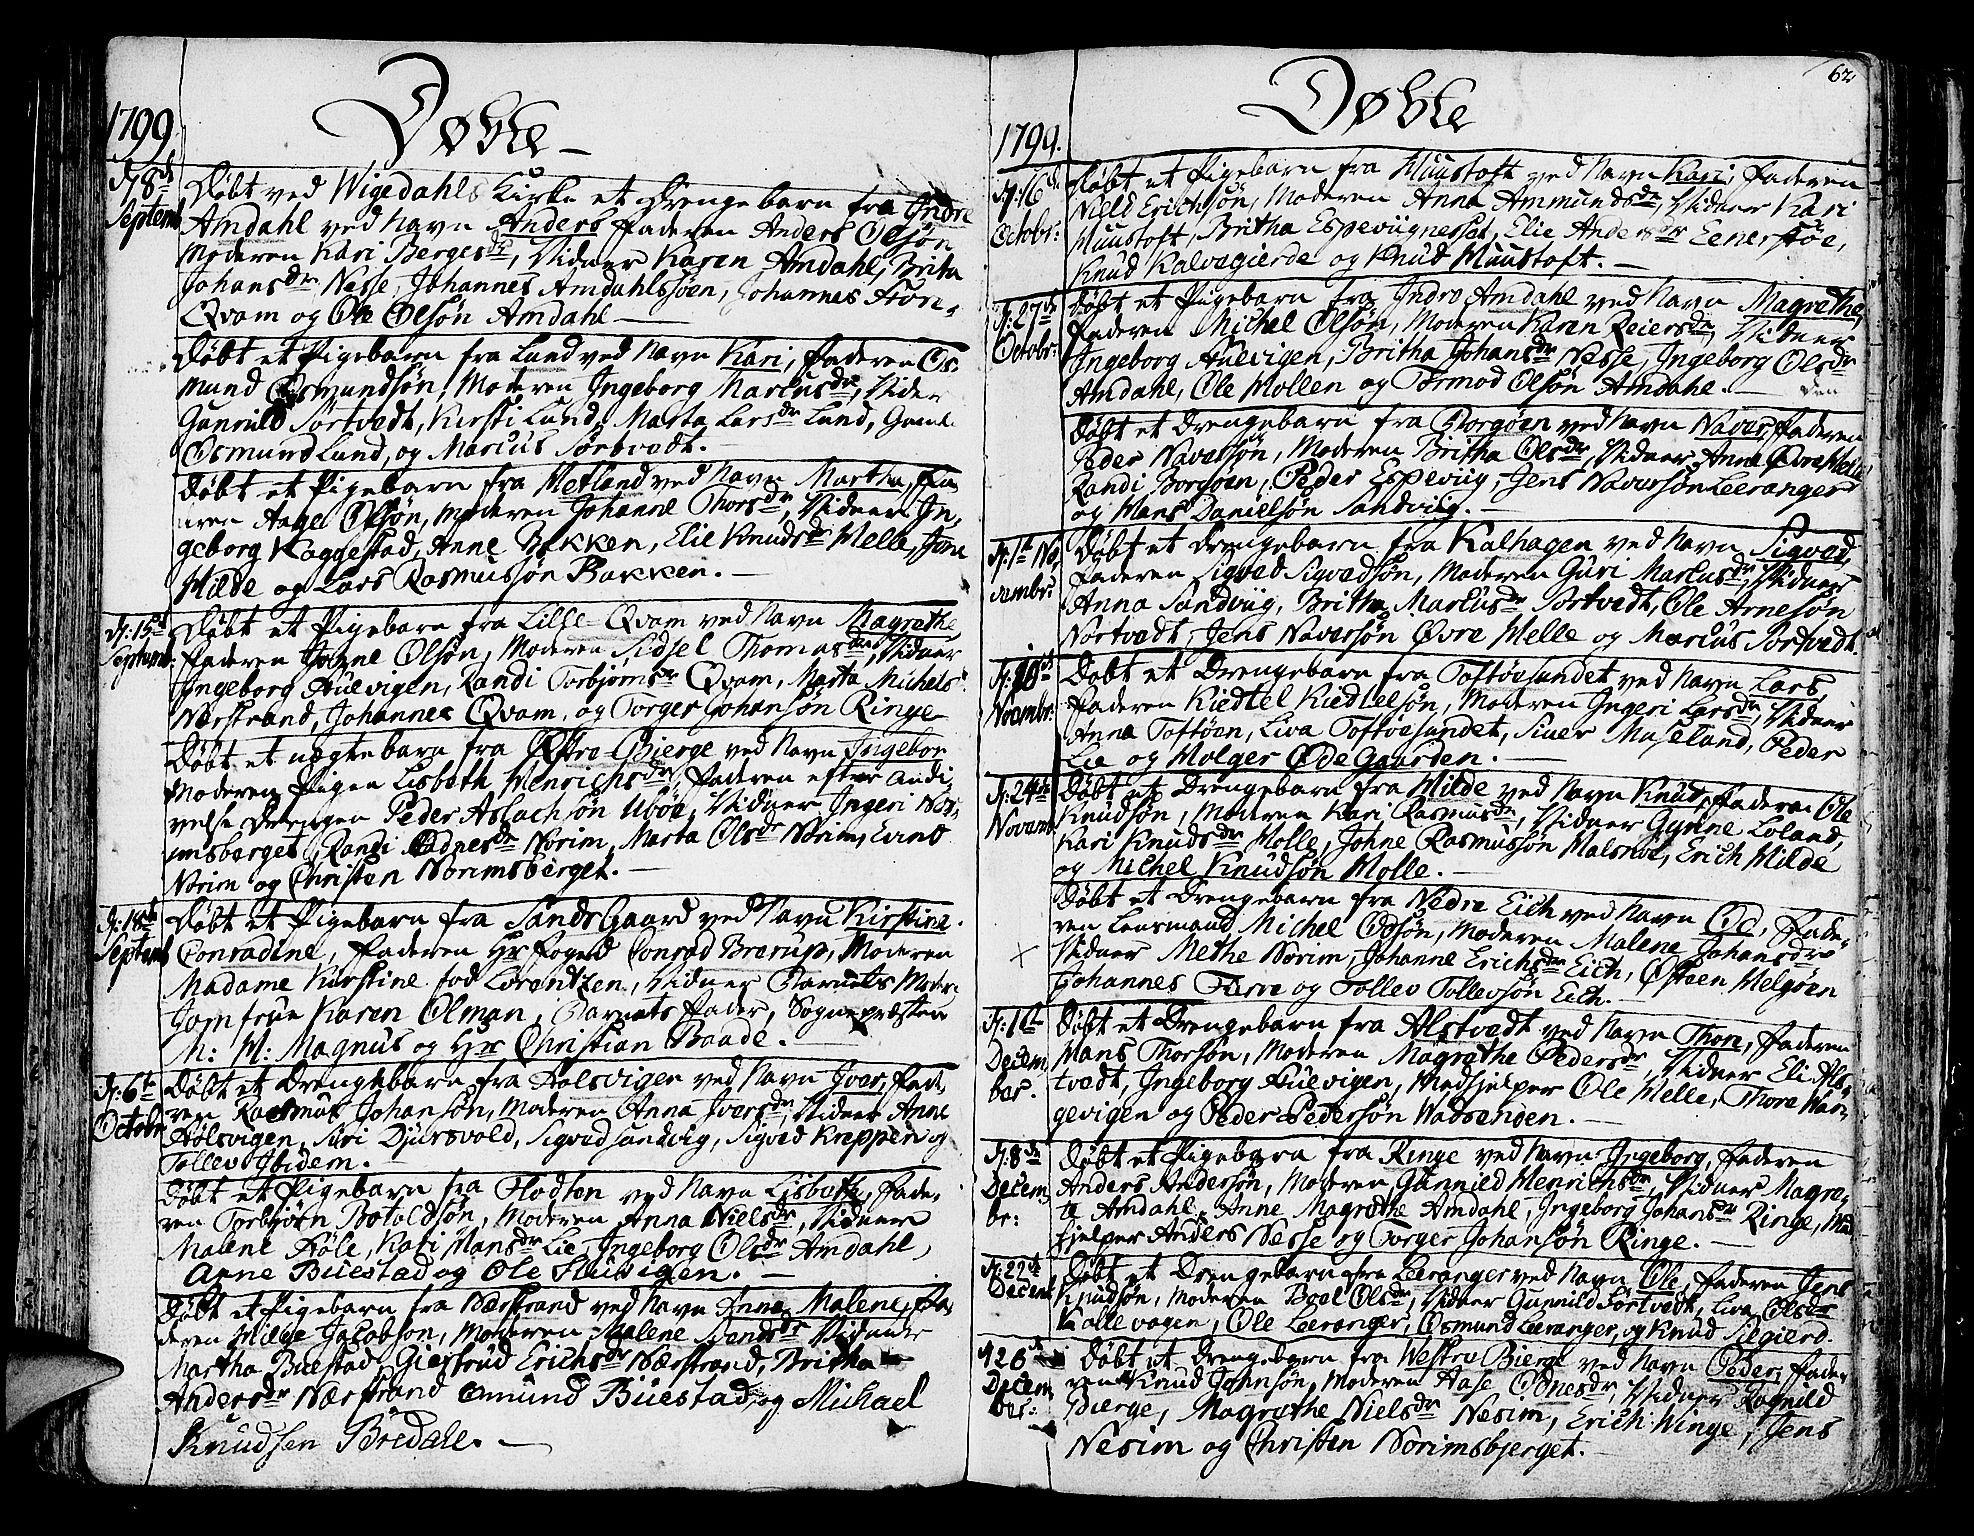 1799
Døbte
d: 8de
Septembr
Døbt ved Wigedahls Kirke et Drengebarn fra Indre
Amdahl ved Navn Anders Faderen Anders Olsøn
Moderen Kari Bergesdr, Vidner Karen Amdahl, Brita
Johansdr Nesse, Johannes Amdahlssoen, Johannes Fore-
Qvam og Ole Olsøn Amdahl
Døbt et Pigebarn fra Lund ved Navn Kari, Faderen Os-
mund Osmundsøn, Moderen Ingeborg Marcusdr, Vidner
Gunnild Sørtvedt, Kirsti Lund, Marta Larsdr Lund, Gamle
Osmund Lund, og Marcus Sørtvedt.
Døbt et Pigebarn fra Metland ved Navn Martha, Fa-
deren Aage Olsøn, Moderen Johanne Thorsdr, Vidner In-
geborg Kaggestad, Anne Bakken, Elie Knudsdr Melle, Jone
Hilde og Lars Rasmusøn Bakken.
d: 15de
Septembr:
Døbt et Pigebarn fra Lille-Qvam ved Navn Magrethe
Faderen Johne Olsøn, Moderen Sidsel Thomasdr, Vidner
Ingeborg Auevigen, Randi Torbjørnsdr Qvam, Marta Michels
Nærstrand, Johannes Qvam, og Torger Johansøn Ringe
Døbt et uegte barn fra Østre Bierge ved Navn Ingebor
Moderen Pigen Lisbeth Henrichsdr, Faderen efter andi
velse Drengen Peder Aslachsøn Uböe, Vidner Ingeri Nor-
imsberget, Randi Odnesdr Norim, Marta Olsdr Norim, Evind
Norim og Christen Norimsberget.
d: 18de
Septembr
Døbt et Pigebarn fra SandsGaard ved Navn Kirstine
Conradine, Faderen Hr Foged Conrad Brerup, Moderen
Madame Kirstine fød Lorentzen, Vidner Barnets Moder
Jomfrue Karen Olman, Barnets Fader, Sognepræsten
M: H: Magnus og Hr Christian Baade.
d: 6te
Octobr
Døbt et Drengebarn fra Hølsvigen ved Navn Iver, Fade-
ren Rasmus Johansøn, Moderen Anna Iversdr, Vidner Anne
Hølsvigen, Siri Djursvold, Sigved Sandvig, Sigved Kreppen og
Tollev Ibidem.
Døbt et Pigebarn fra Flodten ved Navn Lisbeth, Fade-
ren Torbjørn Botoldsøn, Moderen Anna Nielsdr, Vidner
Malene Høle, Kari Hansdr Lie, Ingeborg Olsdr Amdahl,
Arne Buestad og Ole Auevigen.
Døbt et Pigebarn fra Nærstrand ved Navn Anne Malene, Fa-
deren Jacobsøn, Moderen Malene Svendsdr Vidner
Martha Buestad, Giertrud Erichsdr Nærstrand, Britha
Andersdr Nærstrand Omund Buestad, og Michael
Knudsen Bredahl.
62
1799.
Døbte
d: 16de
Octobr:
Døbt et Pigebarn fra Muustoft ved Navn Kari, Faderen
Niels Erichsøn, Moderen Anna Ammundsdr, Vidner Kari
Muustoft, Britha Espeviignesset, Elie Andersdr Eenerstøe,
Knud Kalvegierde og Knud Muustoft.
d: 27de
Octobr:
Døbt et Pigebarn fra Indre Amdahl ved Navn Magrethe,
Faderen Michel Olsøn, Moderen Karen Reiersdr, Vidner
Ingeborg Auevigen, Britha Johansdr Nesse, Ingeborg Olsdr
Amdahl, Ole Mollen og Tormod Olsøn Amdahl.
Døbt et Drengebarn fra Borgøen ved Navn Navar, Faderen
Peder Navarsøn, Moderen Britha Olsdr, Vidner Anne Øvre Melle,
Randi Borgøen, Peder Espeviig, Jens Navarsøn Leeranger
og Hans Danielsøn Sandviig.
d: 1te No-
vembr:
Døbt et Drengebarn fra Kalhagen ved Navn Sigved,
Faderen Sigved Sigvedsøn, Moderen Guri Marcusdr, Vidner
Anna Sandviig, Britha Marcusdr Sortvedt, Ole Arnesøn
Nortvedt, Jens Navarsøn Øvre Melle og Marcus Sortvedt.
d: 10de
Novembr:
Døbt et Drengebarn fra Toftøesundet ved Navn Lars,
Faderen Kiedtel Kiedtelsøn, Moderen Ingeri Larsdr, Vidner
Anna Toftøen, Liva Toftøesundet, Siver Maseland, Peder
Lie og Holger Ødegaarden.
d: 24de
Novemb:
Døbt et Drengebarn fra Hilde ved Navn Knut, Faderen Ole
Knudsøn, Moderen Kari Rasmusdr, Vidner Gynne Loland,
Kari Knudsdr Molle, Johne Rasmussøn Malsnæs, Erich Hilde
og Michel Knudsøn Molle.
Døbt et Drengebarn fra Nedre Eich ved Navn Od, Fade-
ren Lensmand Michel Odsøn, Moderen Malene Johansdr
Vidner Methe Norim, Johanne Erichsdr Eich, Østeen Helgøen
Johannes Farve og Tollev Tollevsøn Eich.
d: 1te
Decem
ber.
Døbt et Drengebarn fra Alstvedt ved Navn Thore, Faderen
Hans Thorsøn, Moderen Magrethe Pedersdr, Vidner Eli Als-
tvedt, Ingeborg Auevigen, Medhjelper Ole Melle, Thore Waa-
gevigen og Peder Pedersøn Wadsenden.
d: 8de
Decem
br:
Døbt et Pigebarn fra Ringe ved Navn Ingeborg, Faderen
Anders Andersøn, Moderen Gunnild Henrichsdr, Vidner Magre-
te Amdahl, Anne Magrethe Amdahl, Ingeborg Johansdr Ringe, Med-
hjelper Anders Nesse og Torger Johansøn Ringe.
d: 22de
Decemb
Døbt et Drengebarn fra Leeranger ved Navn Ole, Faderen Jens
Knudsøn, Moderen Boel Olsdr, Vidner Gunnild Sørtvedt, Liva Olsdr
Kallevagen, Ole Leeranger, Osmund Leeranger, og Knud Siegierd.
d 26de
Decem
ber:
Døbt et Drengebarn fra Westre Bierge ved Navn Peder, Fade-
ren Knud Johnsøn, Moderen Aase Odnesdr, Vidner Ragnild
Bierge, Magrethe Nielsdr Nesim, Erich Winge, Jens
Nesim og Christen Norimsbjerget.